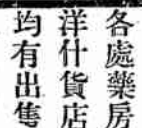 各處藥房
洋什貨店
均有出售